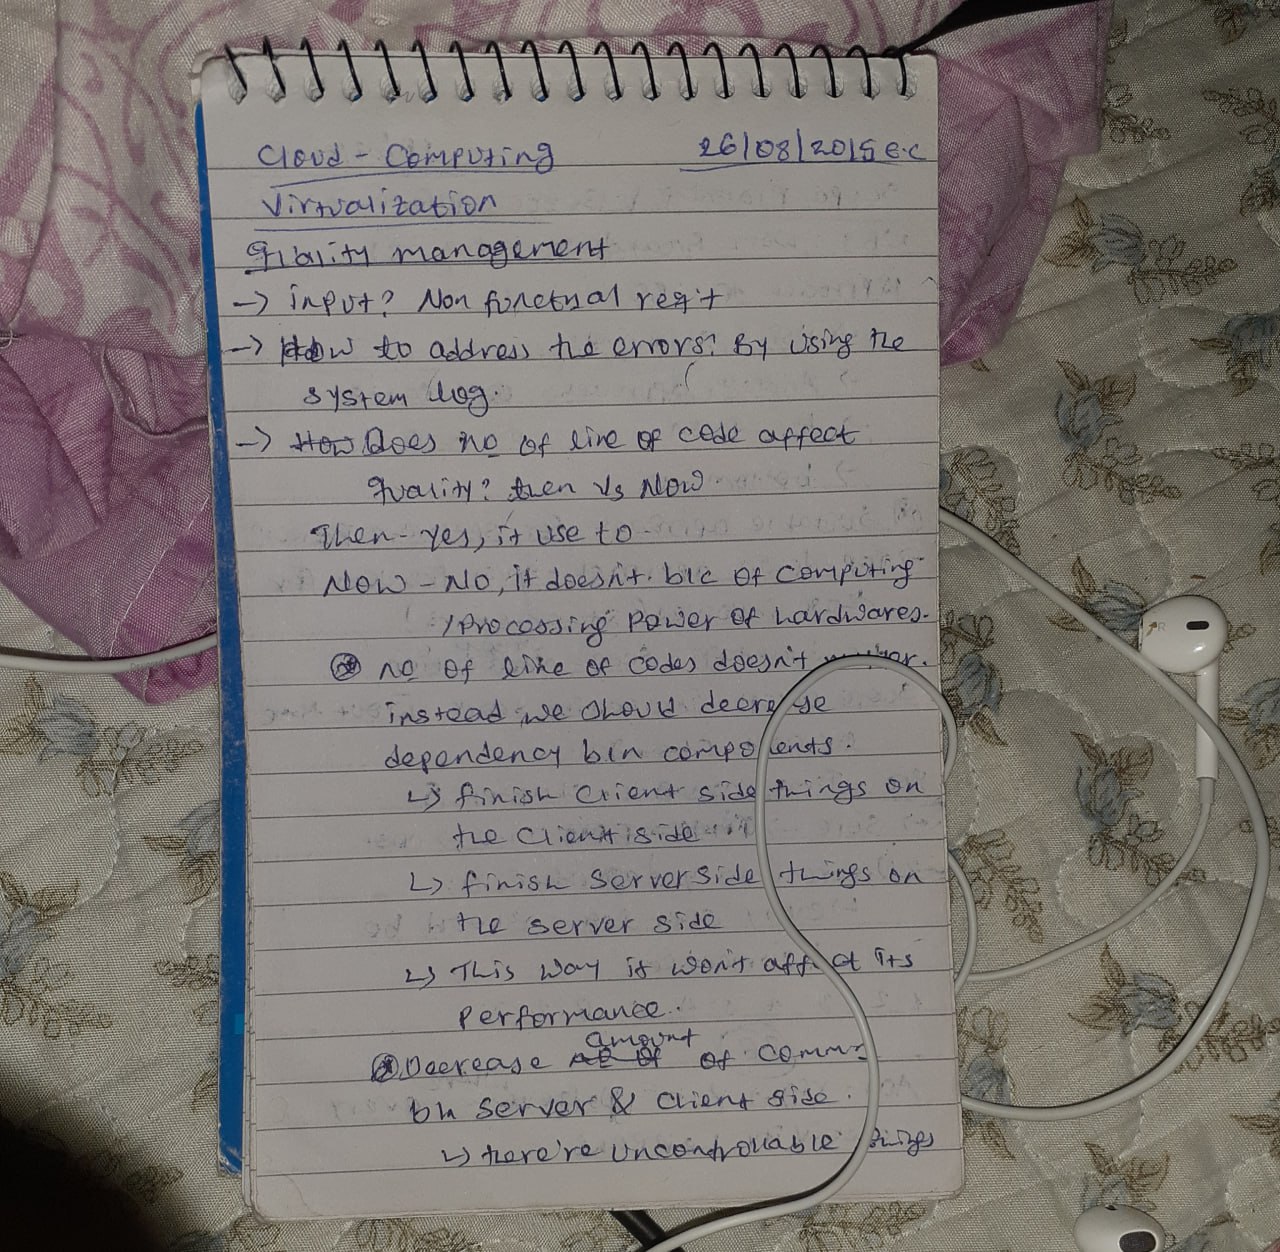 Cloud - Computing 26/08/2015 E.C
Virtualization
Quality management
-> input? Non functual req't
-> How to address the errors? By using the
system log.
-> How Does no of line of code affect
quality? then Vs Now
Then - Yes, it use to
Now - No, it doesn't. b/c of computing
/Processing Power of hardwares.
no of line of codes doesn't
instead we should decrease
dependency b/n components.
↳ finish Client side things on
the Client side
↳ finish Server side things on
the server side
↳ This way it won't affect its
performance.
amount
Decrease of comm:
b/n server & client side.
↳ there're uncontrollable things